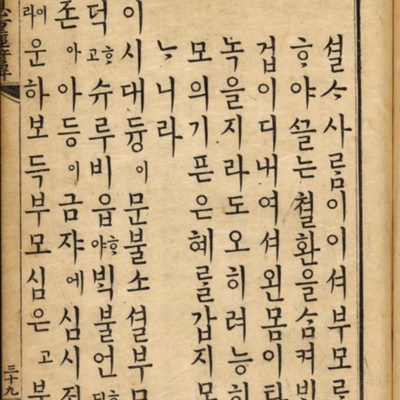 셜ᄉᆞ사ᄅᆞᆷ이이셔부모
ᄒᆞ야ᄭᅳᆯ는쳘환을ᄉᆞᆷ켜
겁이디내여셔왼몸이
녹을지라도오히려능히
모의기픈은혜ᄅᆞᆯ갑지모
ᄂᆞ니라
이시대듕이문불소셜부모
덕ᄒᆞ고슈루비읍ᄒᆞ야ᄇᆡᆨ불언
존아아등이금쟈에심시죄
이라운하보득부모심은고부
重經諺解
三十九